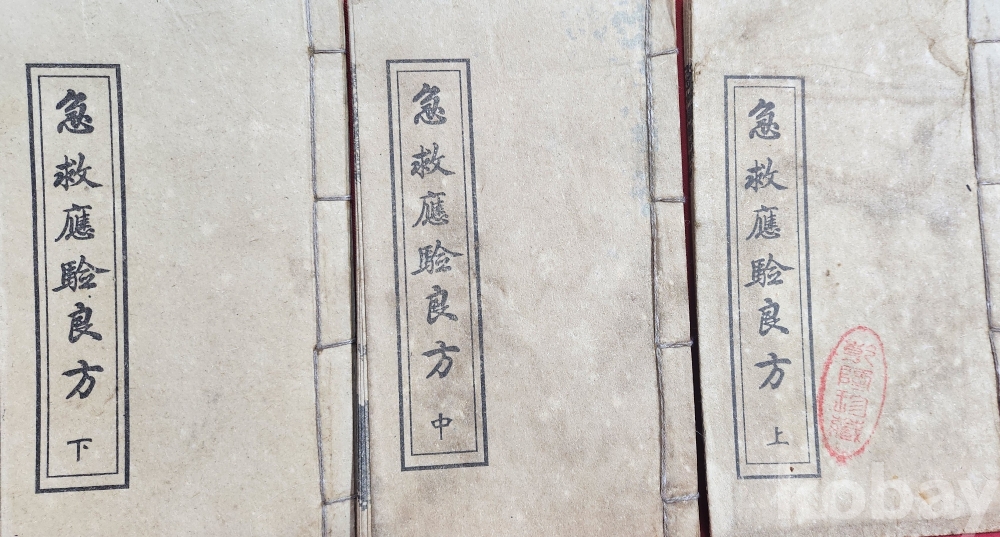 急救應驗良方 上
急救應驗良方 中
急救應驗良方 下
kobay